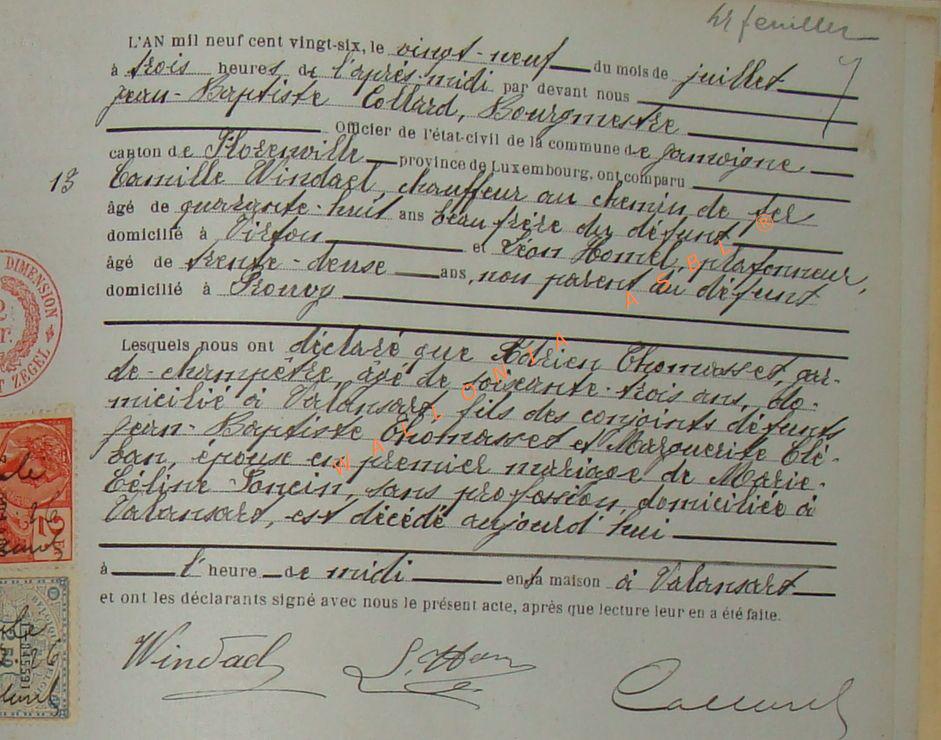 4r feuillet
L'AN mil neuf cent vingt-six, le vingt-neuf du mois de juillet
à trois heures de l'après-midi par devant nous
Jean-Baptiste Collard, Bourgmestre
Officier de l'état-civil de la commune de Jamoigne
canton de Florenville province de Luxembourg, ont comparu
13 Camille Windael, chauffeur au chemin de fer
âgé de quarante-huit ans beau frère du défunt
domicilié à Virton et Léon Homel, plafonneur,
âgé de trente-deuse ans, non parent au défunt
domicilié à Prouvy
Lesquels nous ont déclaré que Adrien Thomasset, gar-
de-champêtre, âgé de soixante-trois ans, do-
micilié à Valansart, fils des conjoints défunts
Jean-Baptiste Thomasset et Marguerite Clé-
ban, époux en premier mariage de Marie-
Céline Poncin, sans profession, domiciliée à
Valansart, est décédé aujourd'hui
à l'heure de midi en sa maison à Valansart
et ont les déclarants signé avec nous le présent acte, après que lecture leur en a été faite.
Windael L. Hom
Collard
DIMENSION
ZEGEL
WALLONIA ASBL ®